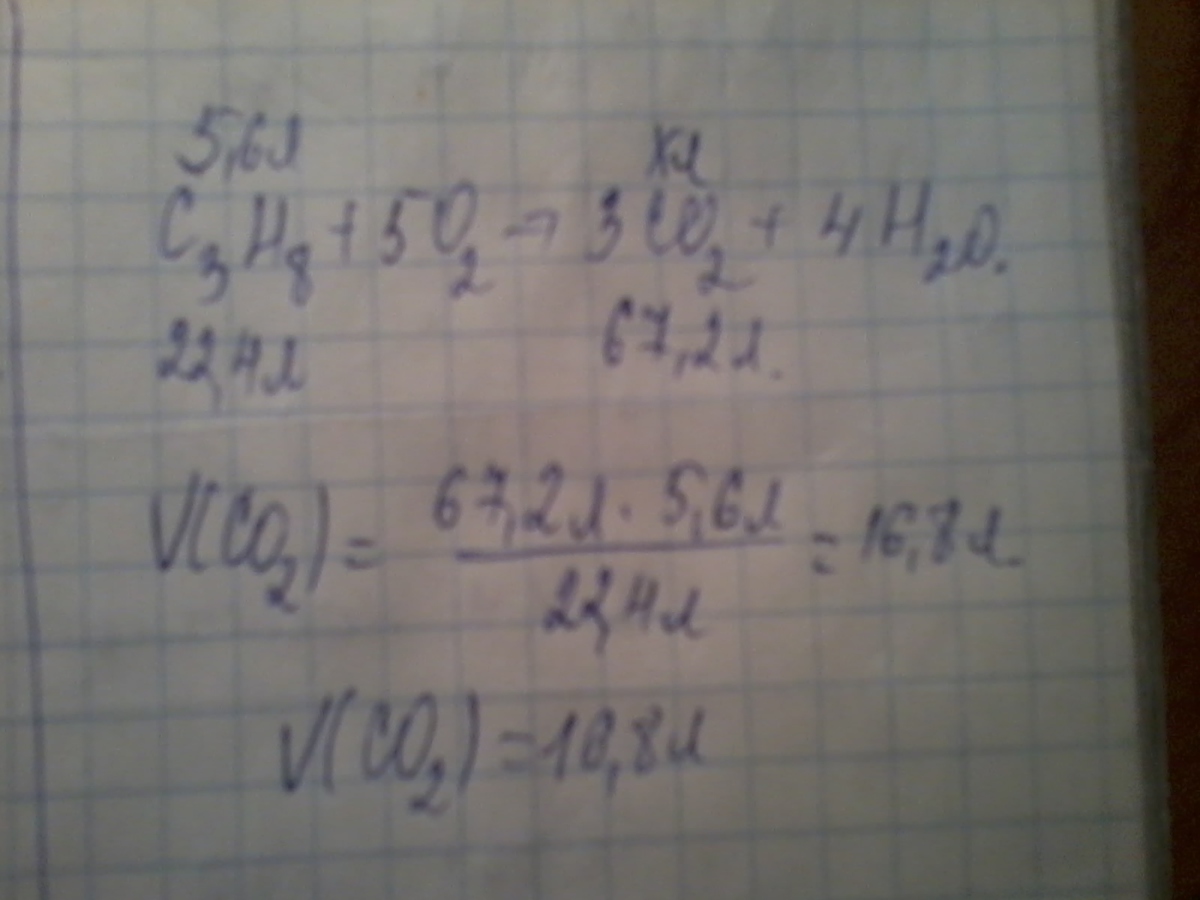 5,6л хл
C₃H₈ + 5O₂ → 3CO₂ + 4H₂O.
22,4л 67,2л.
V(CO₂) = 67,2л · 5,6л / 22,4л = 16,8л
V(CO₂) = 16,8л